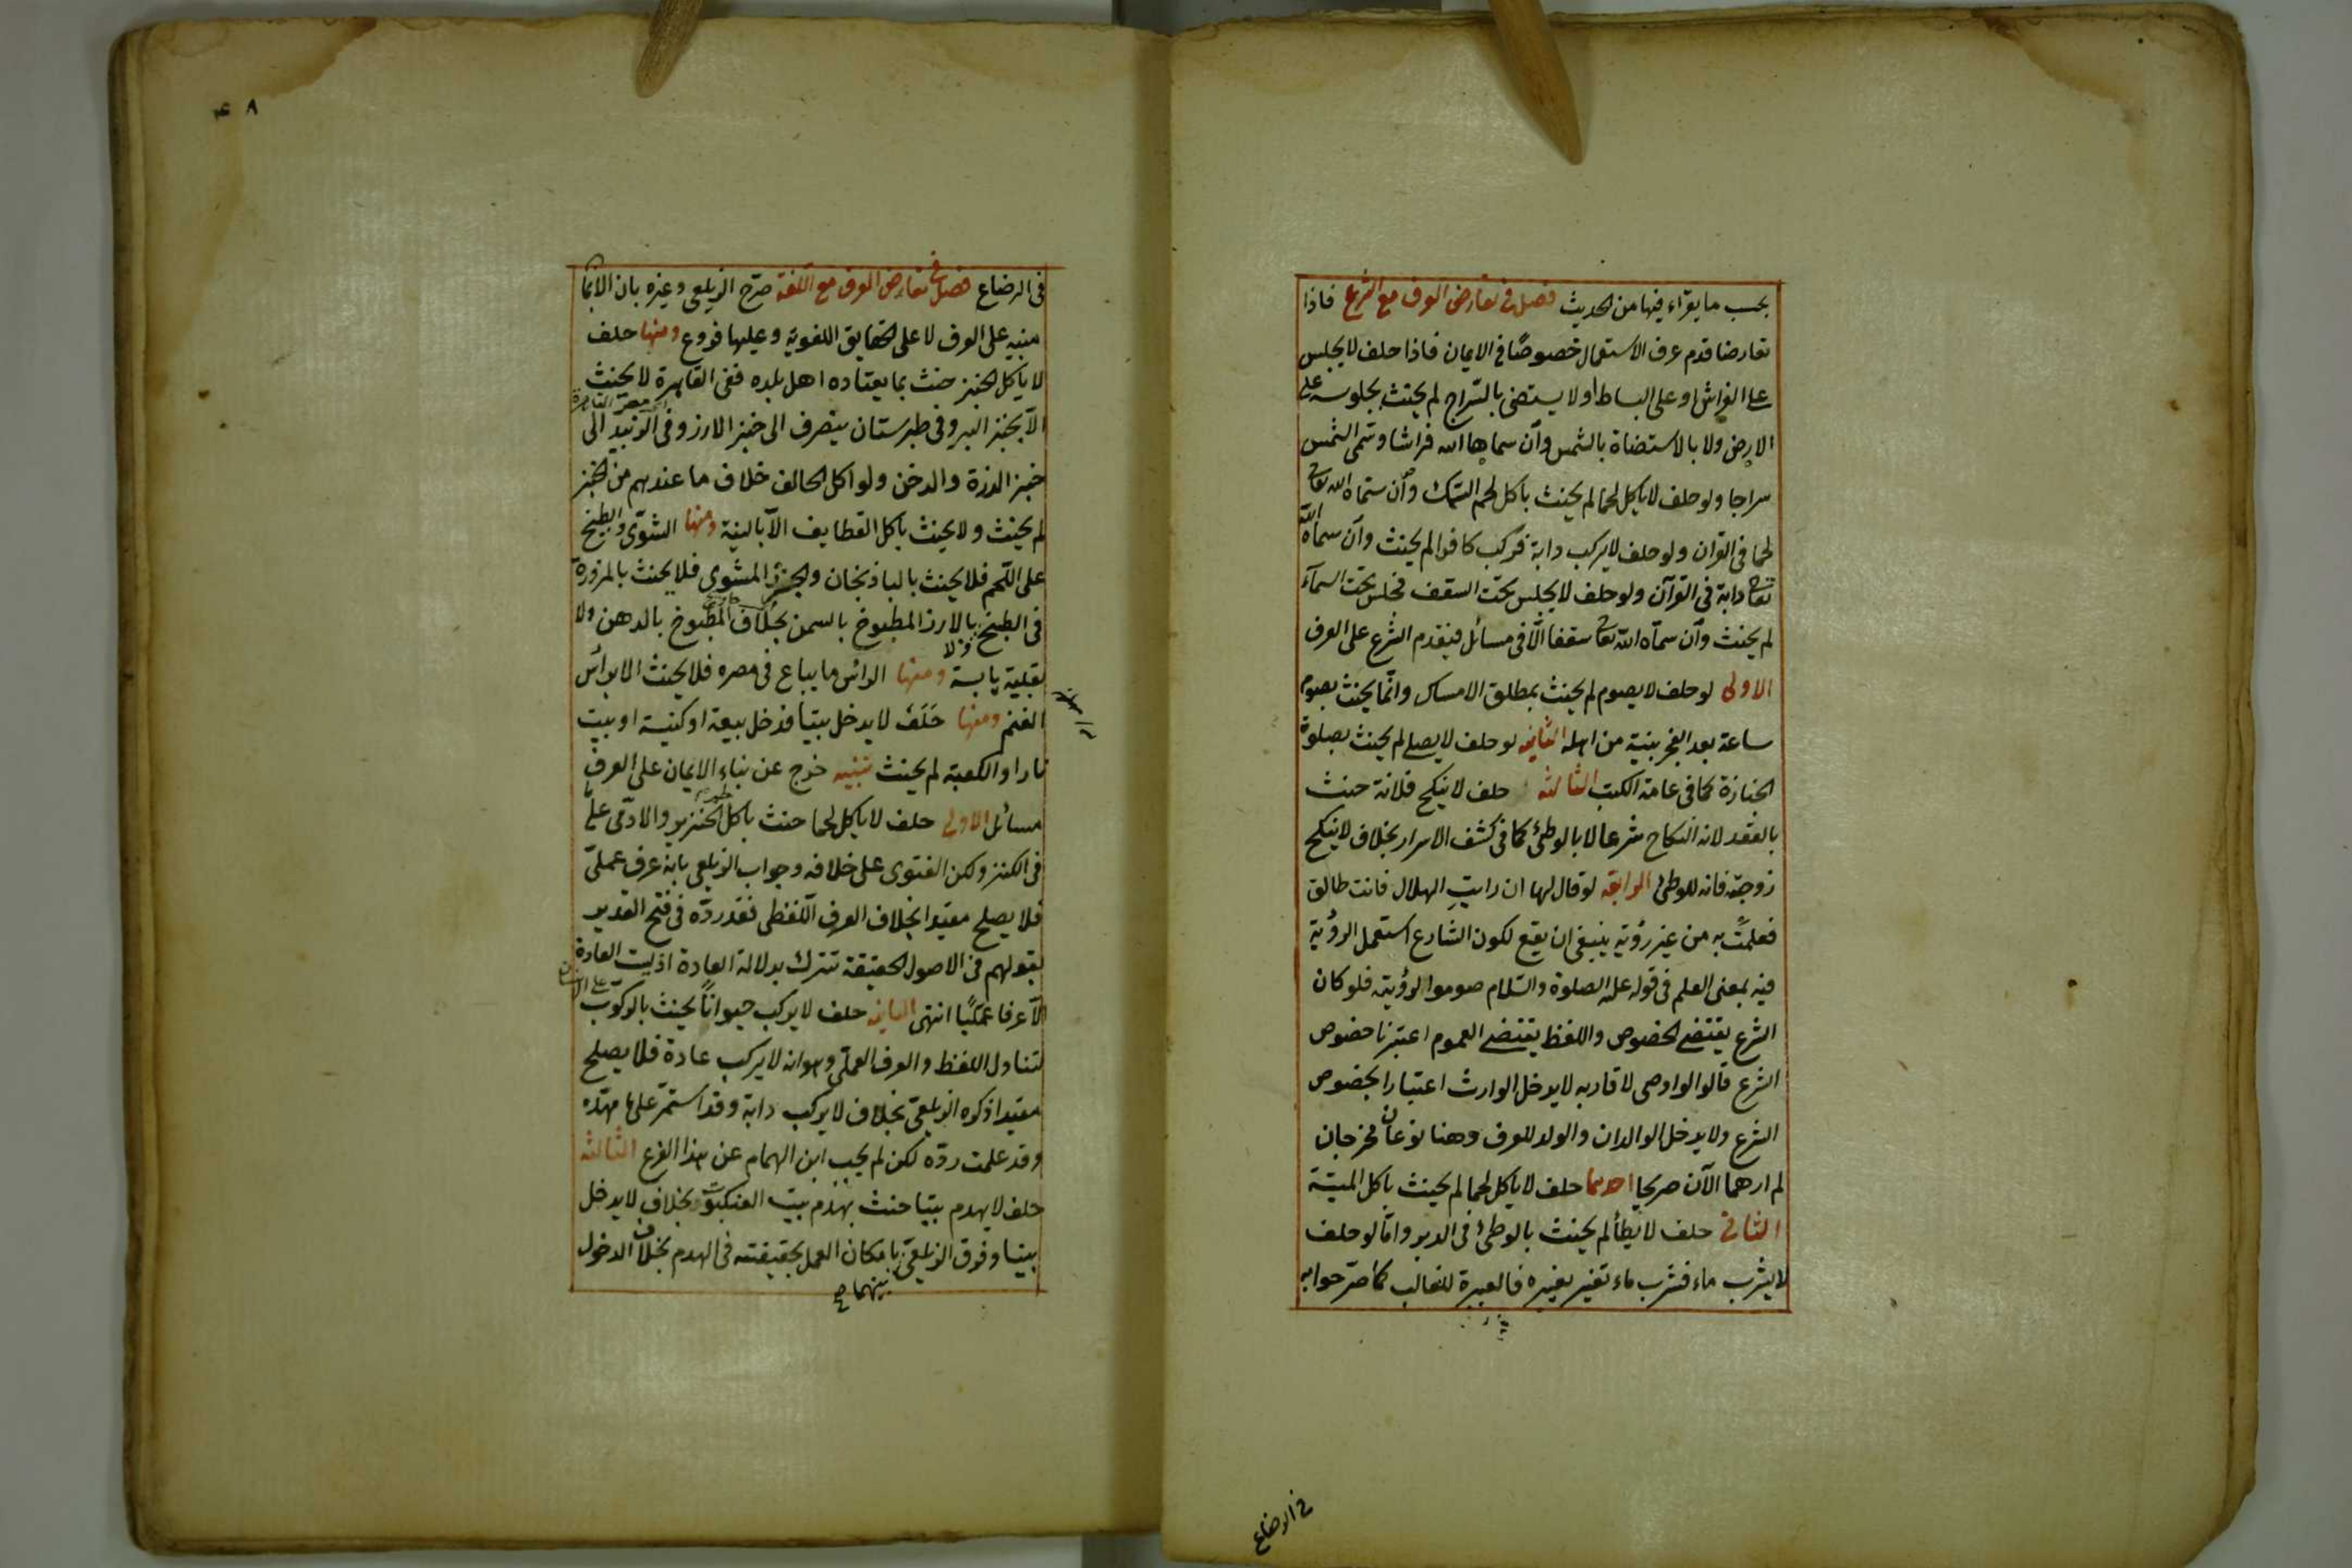 بحسب ما يقراء فيها من الحديث فصل في تعارض العرف مع الشرع فاذا
تعارضا قدم عرف الاستعمال خصوصًا في الايمان فاذا حلف لا يجلس
على الفراش او على البساط او لا يستضئ بالسّراج لم يحنث بجلوسه على
الارض ولا بالاستضاة بالشمس وان سماها الله فراشا وسمى الشمس
سراجا ولو حلف لا ياكل لحما لم يحنث باكل لحم السّمك وان سمّاه الله تعالى
لحما في القران ولو حلف لا يركب دابة فركب كافرا لم يحنث وان سماه الله
تعالى دابة في القرآن ولو حلف لا يجلس تحت السقف فجلس تحت السمآء
لم يحنث وان سمّاه الله تعالى سقفا الّا في مسائل فيقدم الشرع على العرف
الاولى لو حلف لا يصوم لم يحنث بمطلق الامساك وانّما يحنث بصوم
ساعة بعد الفجر بنية من اهله الثانيه لو حلف لا يصلى لم يحنث بصلوة
الجنازة كما في عامة الكتب الثالثه حلف لا ينكح فلانة حنث
بالعقد لانه النكاح شرعا لا بالوطئ كما في كشف الاسرار بخلاف لا ينكح
زوجته فانه للوطئ الرابعه لو قال لها ان رايتِ الهلال فانت طالق
فعلمت به من غير رؤية ينبغي ان يقع لكون الشارع استعمل الرؤية
فيه بمعنى العلم في قوله عليه الصلوة والسّلام صوموا لرؤيته فلو كان
الشرع يقتضى الخصوص واللفظ يقتضى العموم اعتبرنا خصوص
الشرع قالوا لو اوصى لاقاربه لا يدخل الوارث اعتبارا لخصوص
الشرع ولا يدخل الوالدان والولد للعرف وهنا نوعان مخرجان
لم ارهما الآن صريحا احدهما حلف لا ياكل لحما لم يحنث باكل الميتة
الثاني حلف لا يطأ لم يحنث بالوطئ في الدبر وامّا لو حلف
لا يشرب ماء فشرب ماء تغير بغيره فالعبرة للغالب كما صرّحوا به
في الرضاع
٤٨
في الرضاع فصل في تعارض العرف مع اللّغة صرّح الزيلعي وغيره بان الايمان
مبنيه على العرف لا على الحقايق اللغوية وعليها فروع ومنها حلف
لا ياكل الخبز حنث بما يعتاده اهل بلده ففي القاهرة لا يحنث
الّا بخبز البر وفي طبرستان ينصرف الى خبز الارز وفي زبيد الى
خبز الذرة والدخن ولو اكل الحالف خلاف ما عندهم من الخبز
لم يحنث ولا يحنث باكل القطايف الّا بالنية ومنها الشوّى والطبيخ
على اللّحم فلا يحنث بالباذنجان والجزر المشوى فلا يحنث بالمزورة
في الطبيخ ولا بالارز المطبوخ بالسمن بخلاف المطبوخ بالدهن ولا
بقلية يابسة ومنها الراس ما يباع في مصره فلا يحنث الا براس
الغنم ومنها حَلَفَ لا يدخل بيتا فدخل بيعة او كنيسة او بيت
نار او الكعبة لم يحنث تنبيه خرج عن بناء الايمان على العرف
مسائل الاولى حلف لا ياكل لحما حنث باكل الخنزير والادمى على
في الكنز ولكن الفتوى على خلافه وجواب الزيلعي بانه عرف عملىّ
فلا يصلح مقيدا بخلاف العرف اللّفظى فقد ردّه في فتح القدير
بقولهم في الاصول الحقيقة تترك بدلالة العادة اذ ليست العادة
الّا عرفا عمليًّا انتهى الثانيه حلف لا يركب حيوانًا يحنث بالركوب على الانسان
لتناول اللفظ والعرف العملّى وهو انه لا يركب عادة فلا يصلح
مقيدا ذكره الزيلعىّ بخلاف لا يركب دابة وقد استمر على ما مهّده
وقد علمت ردّه لكن لم يجب ابن الهمام عن هذا الفرع الثالثه
حلف لا يهدم بيتا حنث بهدم بيت العنكبوت بخلاف لا يدخل
بيتا وفرق الزيلعىّ بينهما بامكان العمل بحقيقته في الهدم بخلاف الدخول